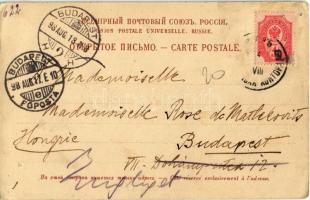 622.
ВСЕМІРНЫЙ ПОЧТОВЫЙ СОЮЗЪ. РОССІЯ.
UNION POSTALE UNIVERSELLE. RUSSIE.
ОТКРЫТОЕ ПИСЬМО. — CARTE POSTALE.
BUDAPEST
98 AUG 18
BUDAPEST
98 AUG 17 E 10
FŐPOSTA
VIII
Mademoiselle
20
Mademoiselle Rose de Matlekovits
Hongrie
Budapest
VII.
12.
На этой сторонѣ пишется только адресъ. — Côté réservé exclusivement à l'adresse.